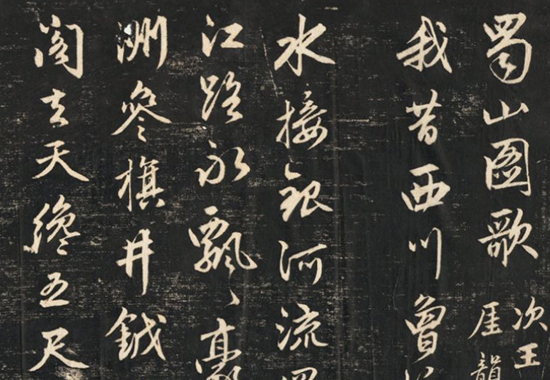 蜀山圖歌
次王
厓韻
我昔西川曾
水接銀河流
江路永飄〻
洲參旗井鉞
閣去天纔五尺